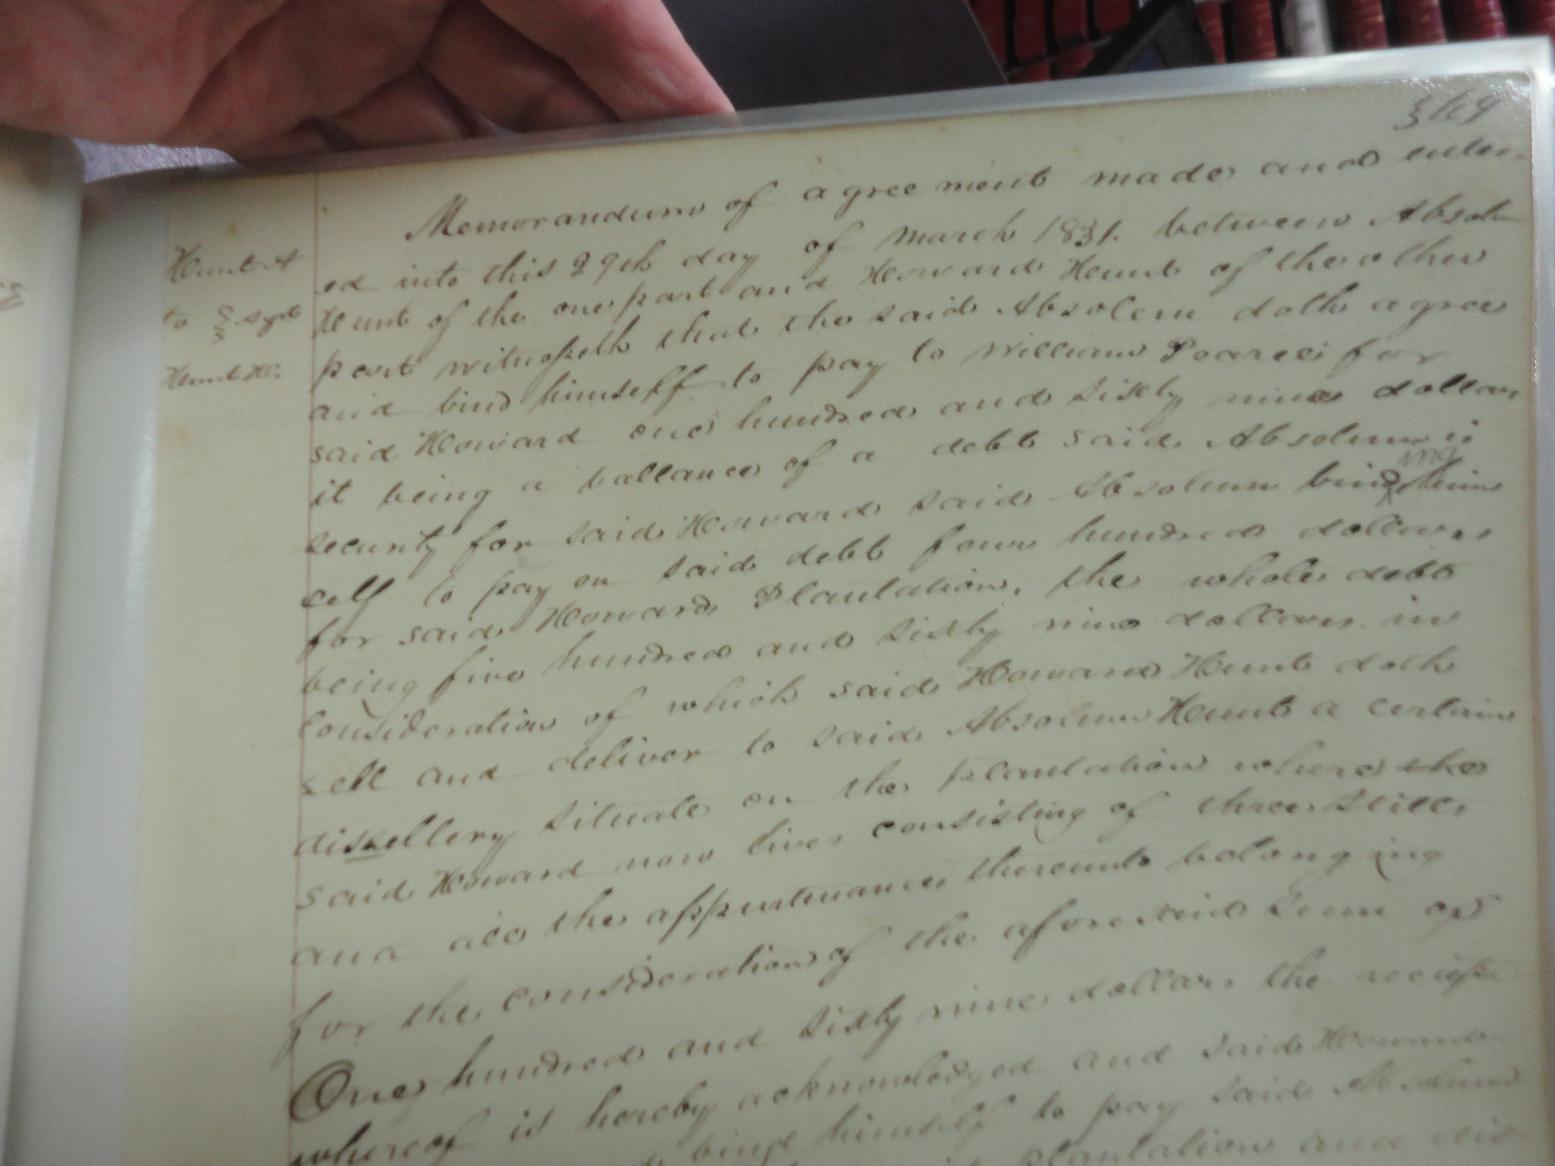 364
Memorandum of agreement made and enter-
ed into this 29th day of March 1831. between Absolum
Hunt of the one part and Howard Hunt of the other
part witnesseth that the said Absolem doth agree
and bind himself to pay to William Pearce for
said Howard one hundred and sixty nine dollars
it being a ballance of a debt said Absolum is
security for said Howard said Absolum binding him
self to pay on said debt four hundred dollars
for said Howards Plantation, the whole debt
being five hundred and sixty nine dollars in
consideration of which said Howard Hunt doth
sell and deliver to said Absolum Hunt a certain
distellery situate on the plantation where the
said Howard now lives consisting of three stills
and all the appurtenances thereunto belonging
for the consideration of the aforesaid sum of
One hundred and sixty nine dollars the receipt
whereof is hereby acknowledged and said Howard
bind himself to pay said Absolum
plantation and
Hunt A
to
Hunt H.